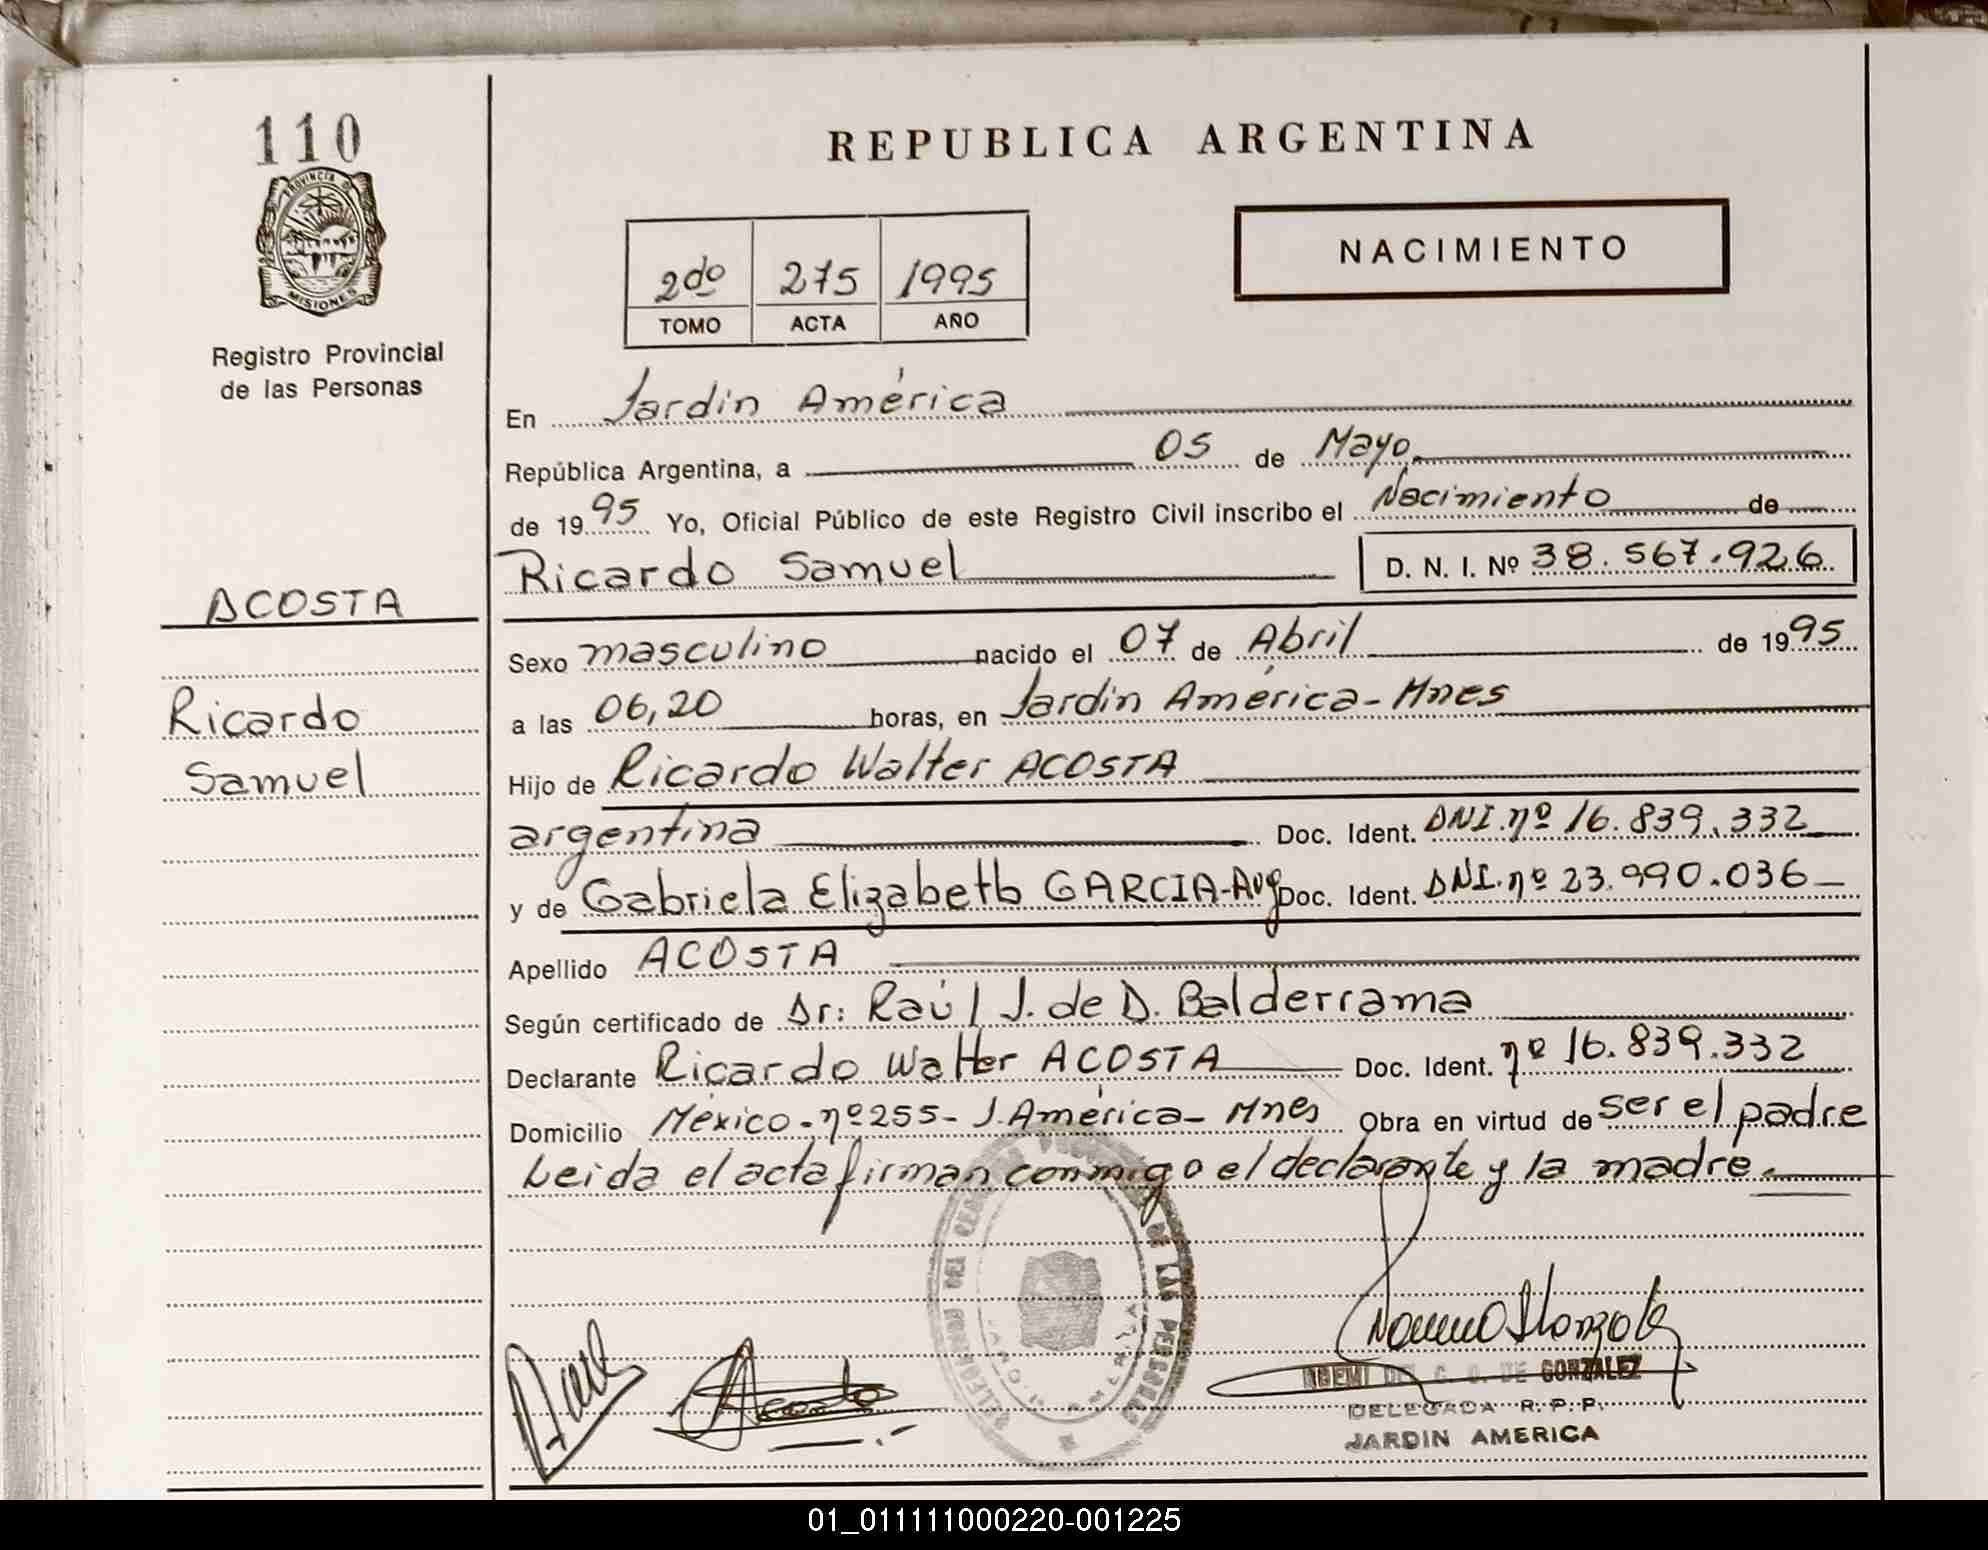 110
PROVINCIA DE
MISIONES
Registro Provincial
de las Personas
ACOSTA
Ricardo
Samuel
REPUBLICA ARGENTINA
NACIMIENTO
2do 275 1995
TOMO ACTA AÑO
En Jardin América
República Argentina, a 05 de Mayo
de 1995 Yo, Oficial Público de este Registro Civil inscribo el Nacimiento de
Ricardo Samuel D. N. I. Nº 38.567.926
Sexo masculino nacido el 07 de Abril de 1995
a las 06,20 horas, en Jardin América-Mnes
Hijo de Ricardo Walter ACOSTA
argentina Doc. Ident. DNI.nº 16.839.332
y de Gabriela Elizabeth GARCIA-Arg Doc. Ident. DNI.nº 23.990.036
Apellido ACOSTA
Según certificado de Dr: Raúl J. de D. Balderrama
Declarante Ricardo Walter ACOSTA Doc. Ident. nº 16.839.332
Domicilio México-nº255-J.América-Mnes Obra en virtud de ser el padre
Leida el acta firman conmigo el declarante y la madre.
DE LAS PERSONAS
Acosta
DE GONZALEZ
DELEGADA R.P.P.
JARDIN AMERICA
01_011111000220-001225